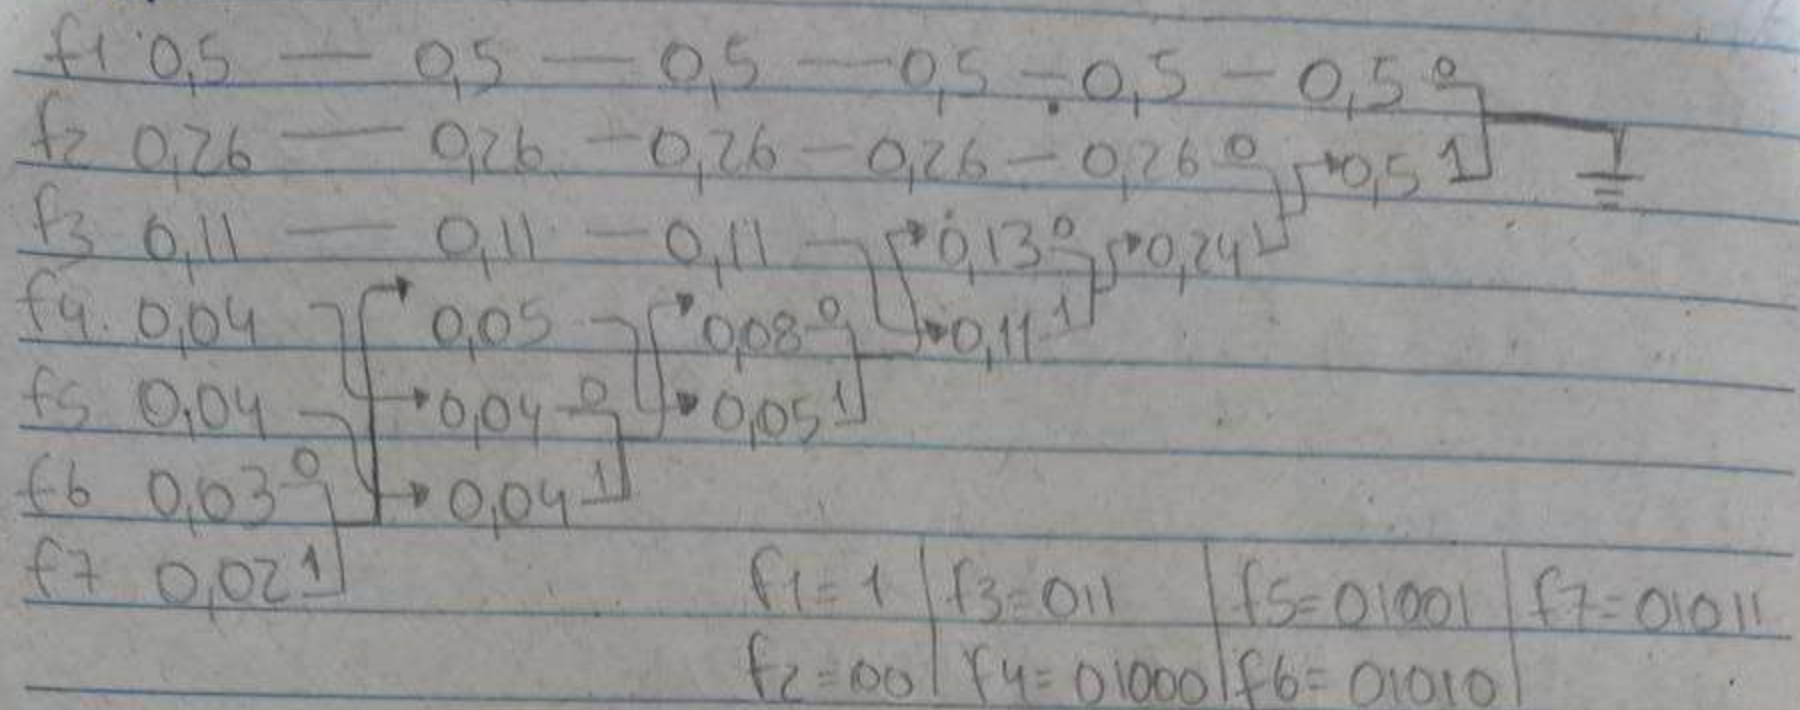 f1 0,5 — 0,5 — 0,5 — 0,5 — 0,5 — 0,5 0
f2 0,26 — 0,26 — 0,26 — 0,26 — 0,26 0 0,5 1
f3 0,11 — 0,11 — 0,11 0,13 0 0,24 1
f4 0,04 0,05 0,08 0 0,11 1
f5 0,04 0,04 0 0,05 1
f6 0,03 0 0,04 1
f7 0,02 1
f1=1 f3=011 f5=01001 f7=01011
f2=00 f4=01000 f6=01010